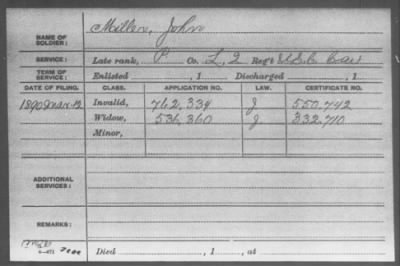 NAME OF SOLDIER: Miller, John
SERVICE: Late rank, P Co. L, 2 Reg't U.S.C. Cav
TERM OF SERVICE: Enlisted , 1 Discharged , 1
DATE OF FILING. CLASS. APPLICATION NO. LAW. CERTIFICATE NO.
1890 Mar. 12 Invalid, 762,334 J 550,742
Widow, 536,360 J 332,710
Minor,
ADDITIONAL SERVICES:
REMARKS:
Died , 1 , at